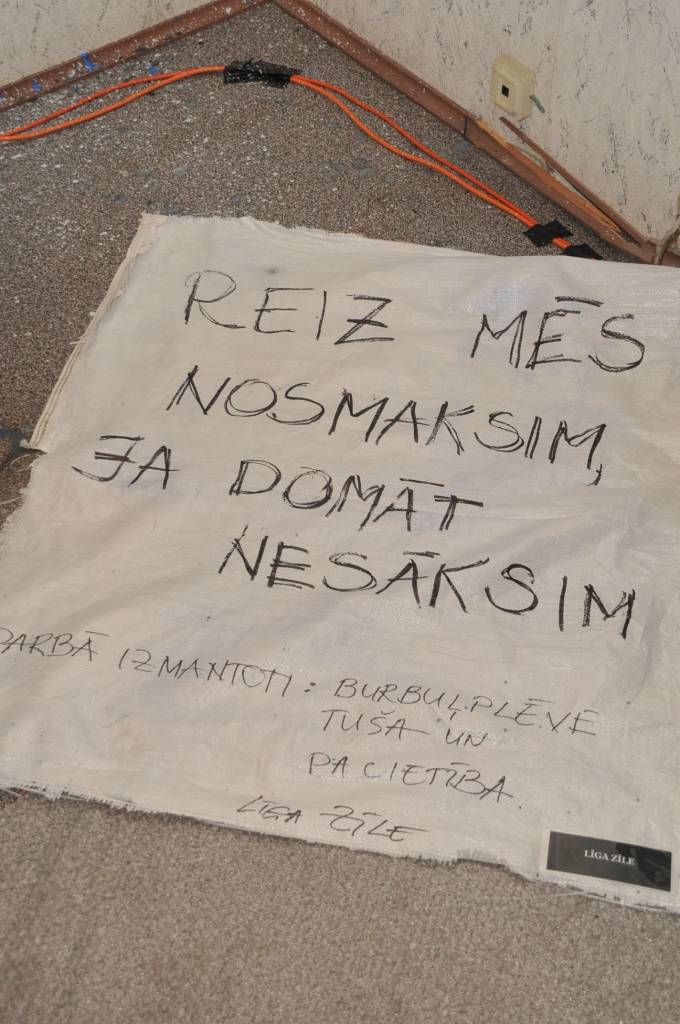 REIZ MĒS
NOSMAKSIM,
JA DOMĀT
NESĀKSIM
DARBĀ IZMANTOTI: BURBUĻPLĒVE
TUŠA UN
PACIETĪBA.
LĪGA ZĪLE
LĪGA ZĪLE